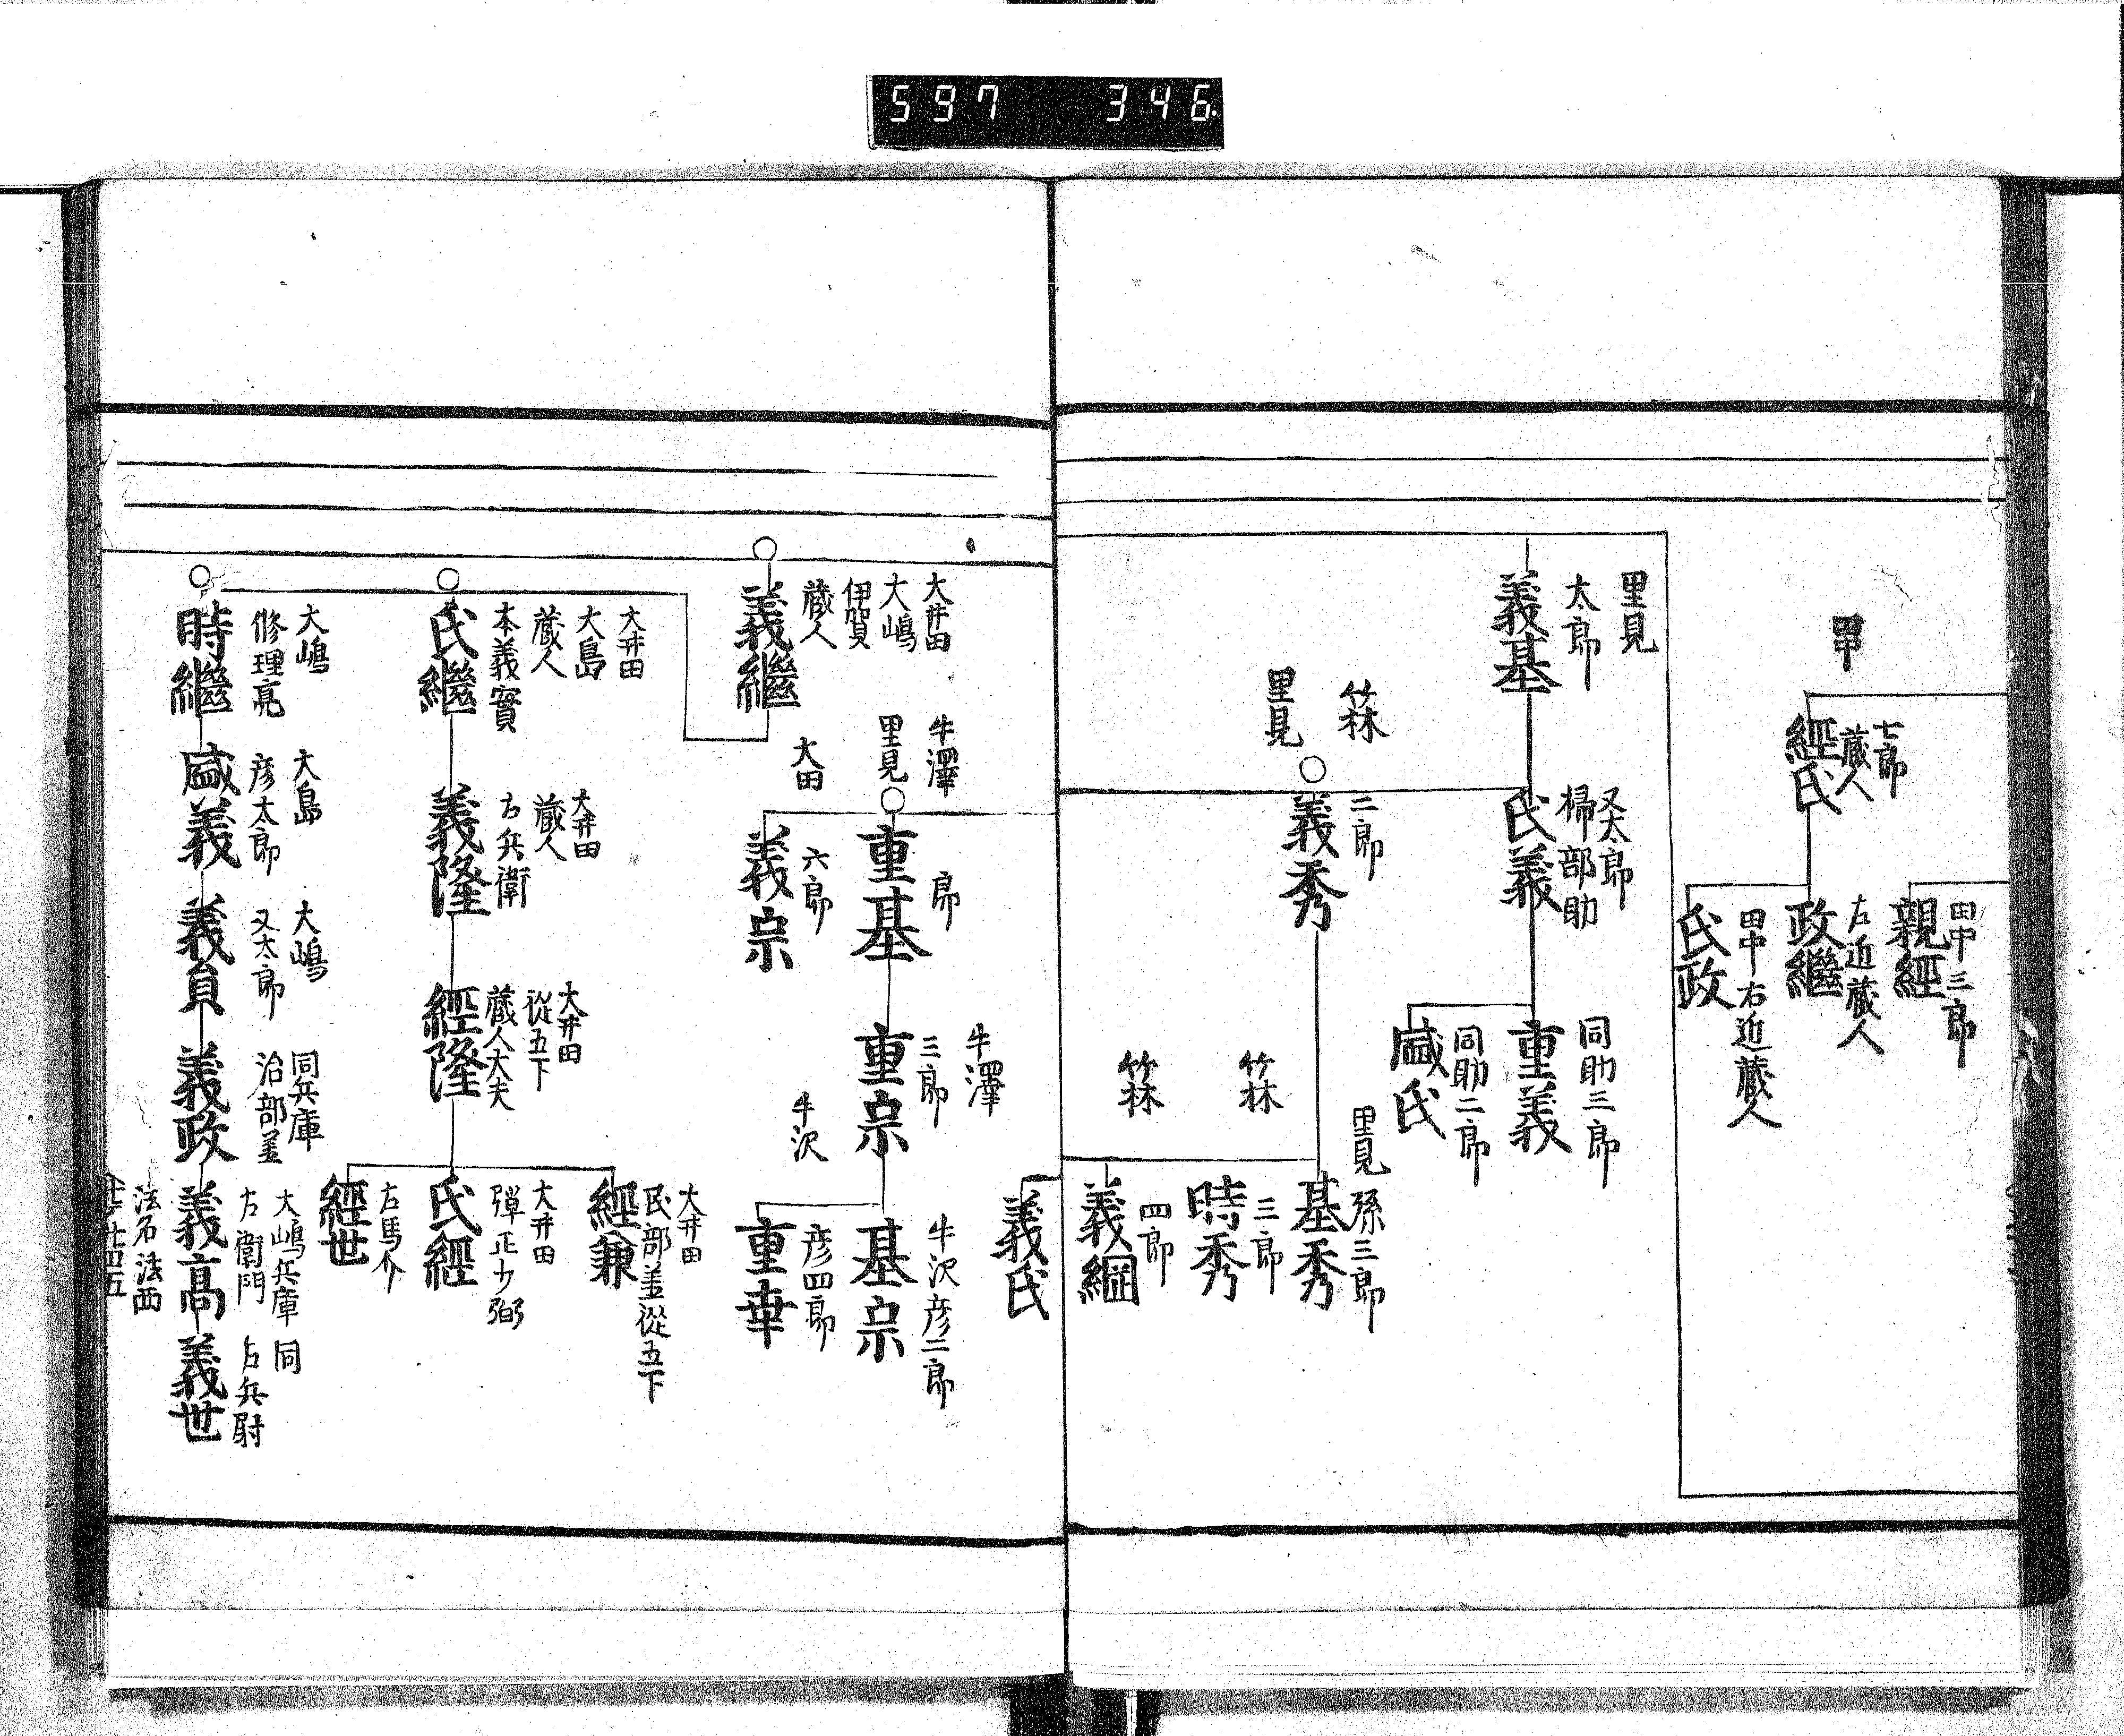 597 346
田中
七郎
蔵人
經氏
田中三郎
親經
左近蔵人
政繼
田中右近蔵人
氏政
里見
太郎
義基
又太郎
掃部助
氏義
同助三郎
重義
同助二郎
義氏
竹林
里見
二郎
義秀
里見孫三郎
基秀
竹林
三郎
時秀
竹林
四郎
義綱
義氏
牛澤
里見
郎
重基
牛澤
三郎
重宗
牛沢彦二郎
基宗
牛沢
彦四郎
重幸
大田
六郎
義宗
大井田
大嶋
伊賀
蔵人
義繼
大井田
大島
蔵人
本義實
氏繼
大井田
蔵人
右兵衛
義隆
大井田
從五下
蔵人大夫
經隆
大井田
民部丞從五下
經兼
大井田
彈正少弼
氏經
右馬介
經世
大嶋
修理亮
時繼
大島
彦太郎
盛義
大嶋
又太郎
義員
同兵庫
治部丞
義政
大嶋兵庫
左衛門
義高
法名法西
同
右兵尉
義世